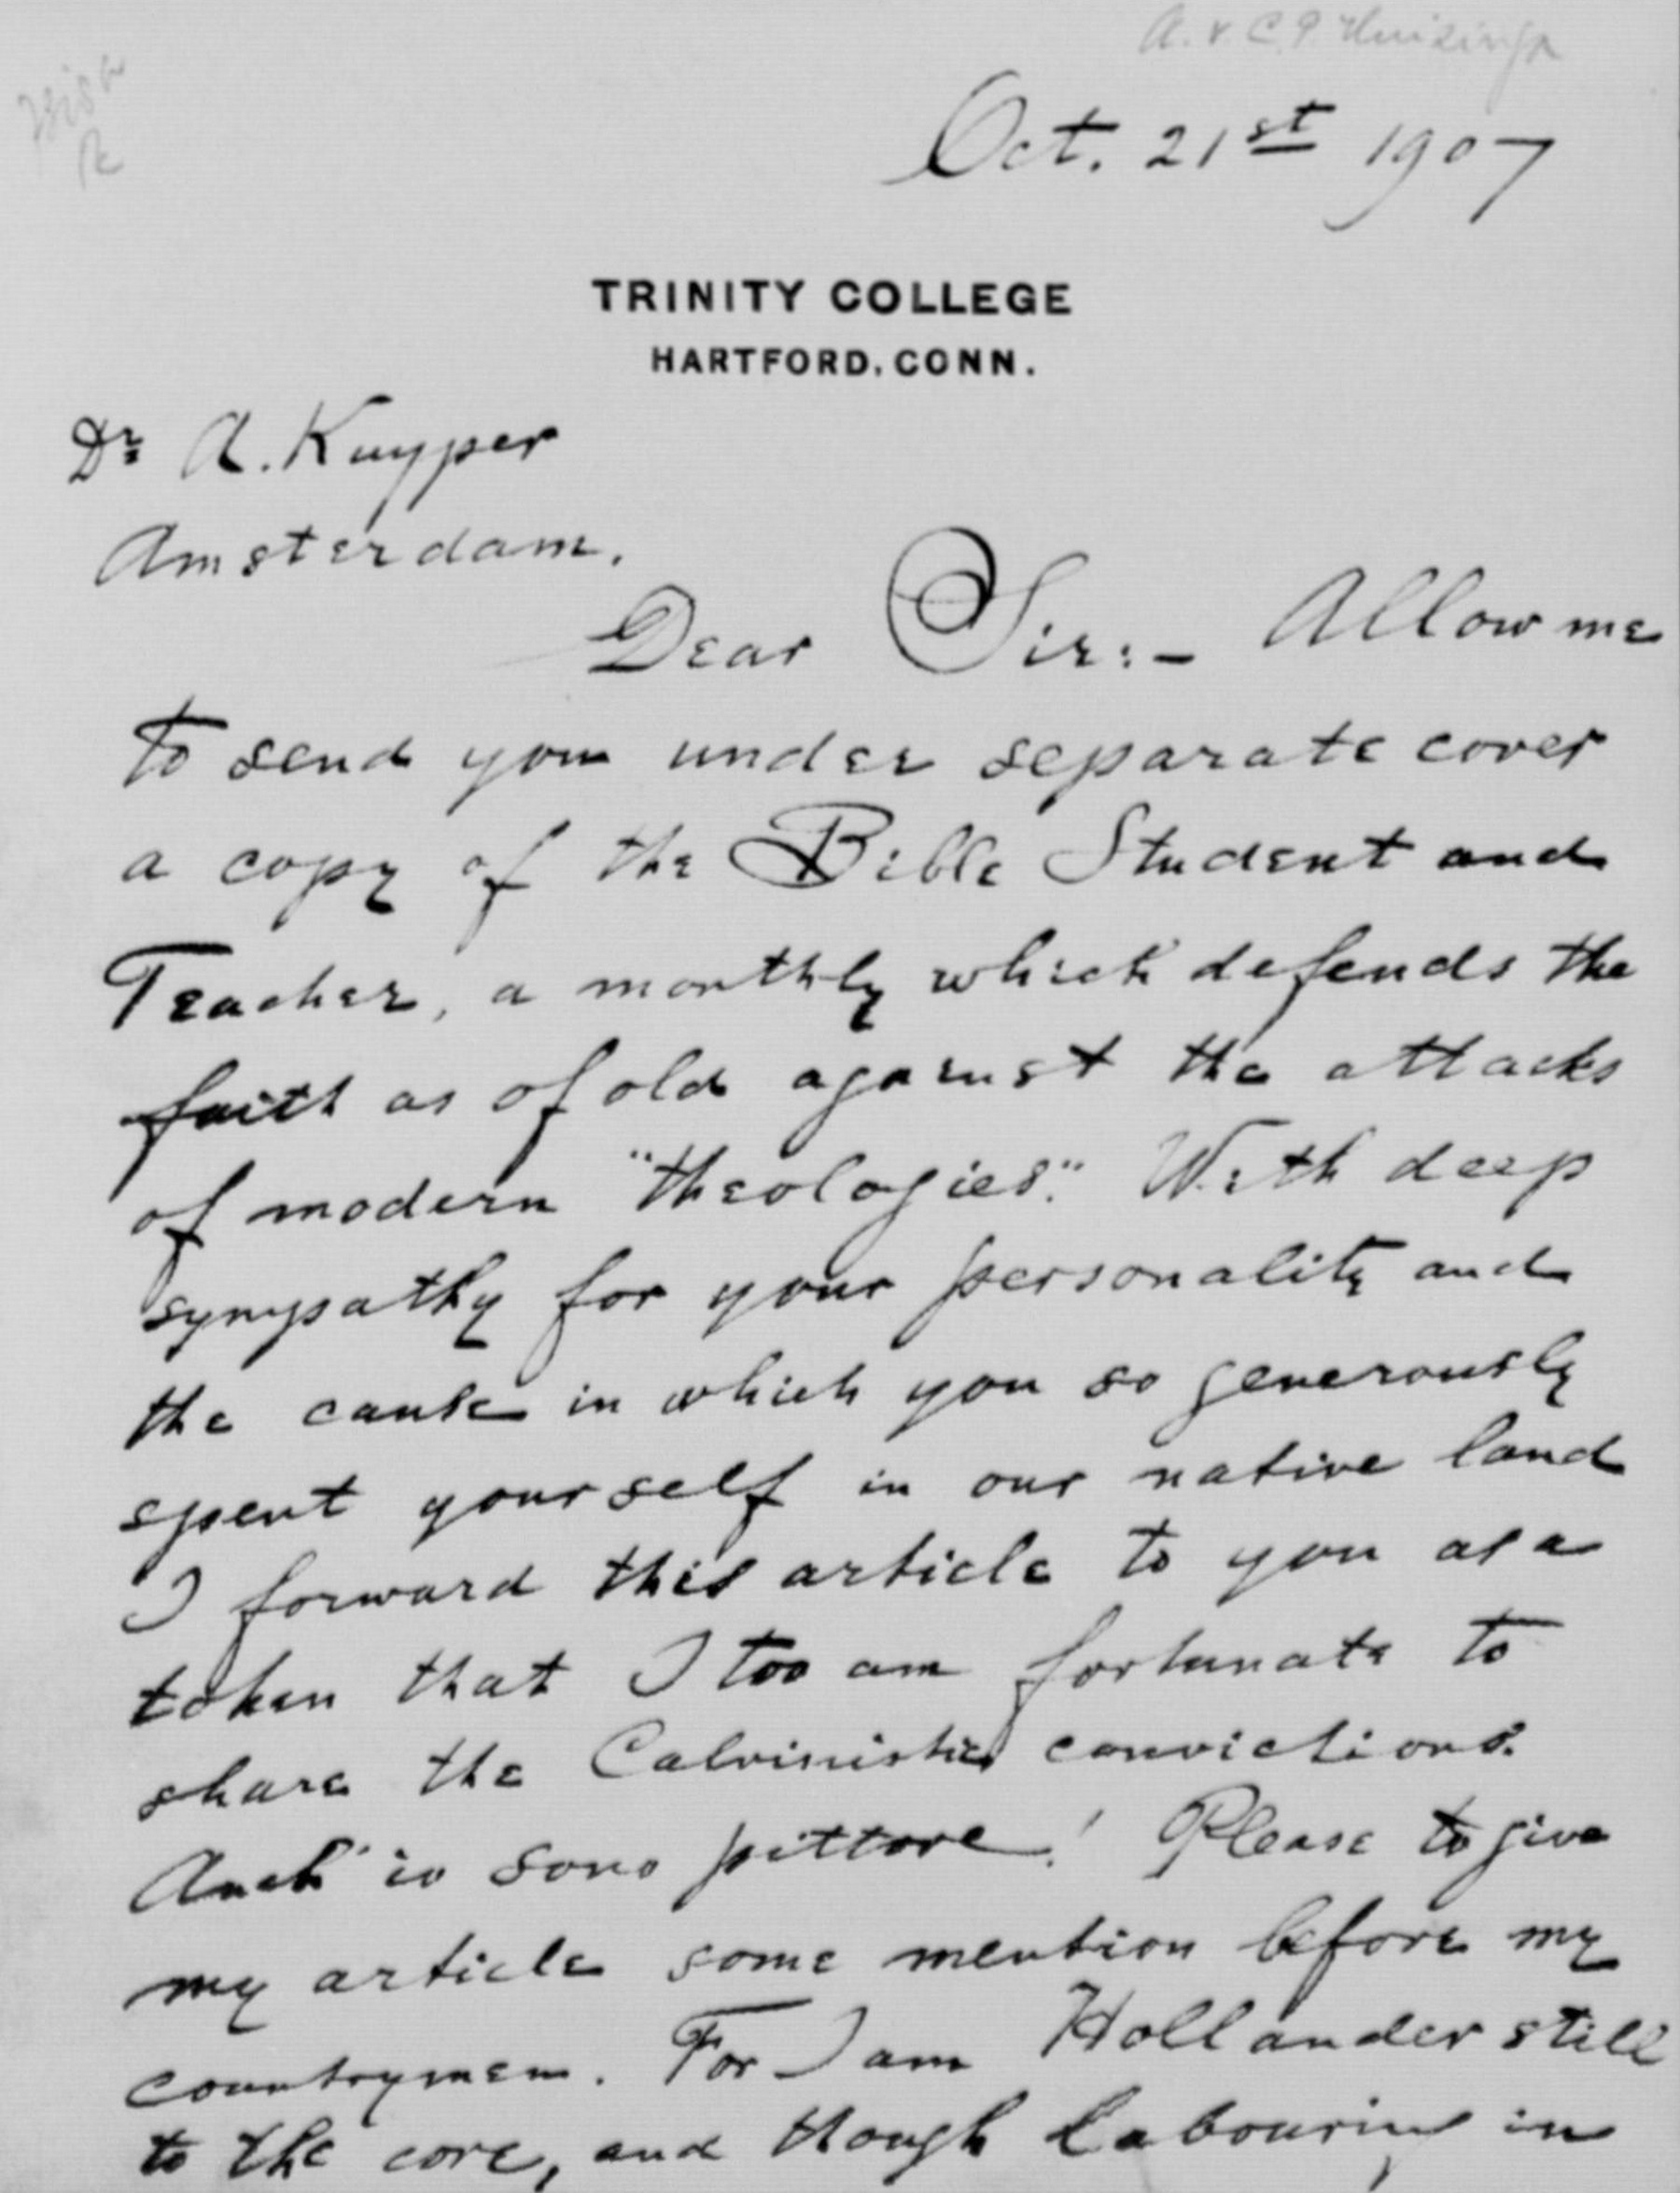 A. v. C. P. Huizinga
Oct. 21st 1907
TRINITY COLLEGE
HARTFORD, CONN.
Dr. A. Kuyper
Amsterdam.
Dear Sir:- Allow me
to send you under separate cover
a copy of the Bible Student and
Teacher, a monthly which defends the
faith as of old against the attacks
of modern "theologies". With deep
sympathy for your personality and
the cause in which you so generously
spent yourself in our native land
I forward this article to you as a
token that I too am fortunate to
share the Calvinistic convictions.
Anch' io sono pittore! Please to give
my article some mention before my
countrymen. For I am Hollander still
to the core, and though labouring in